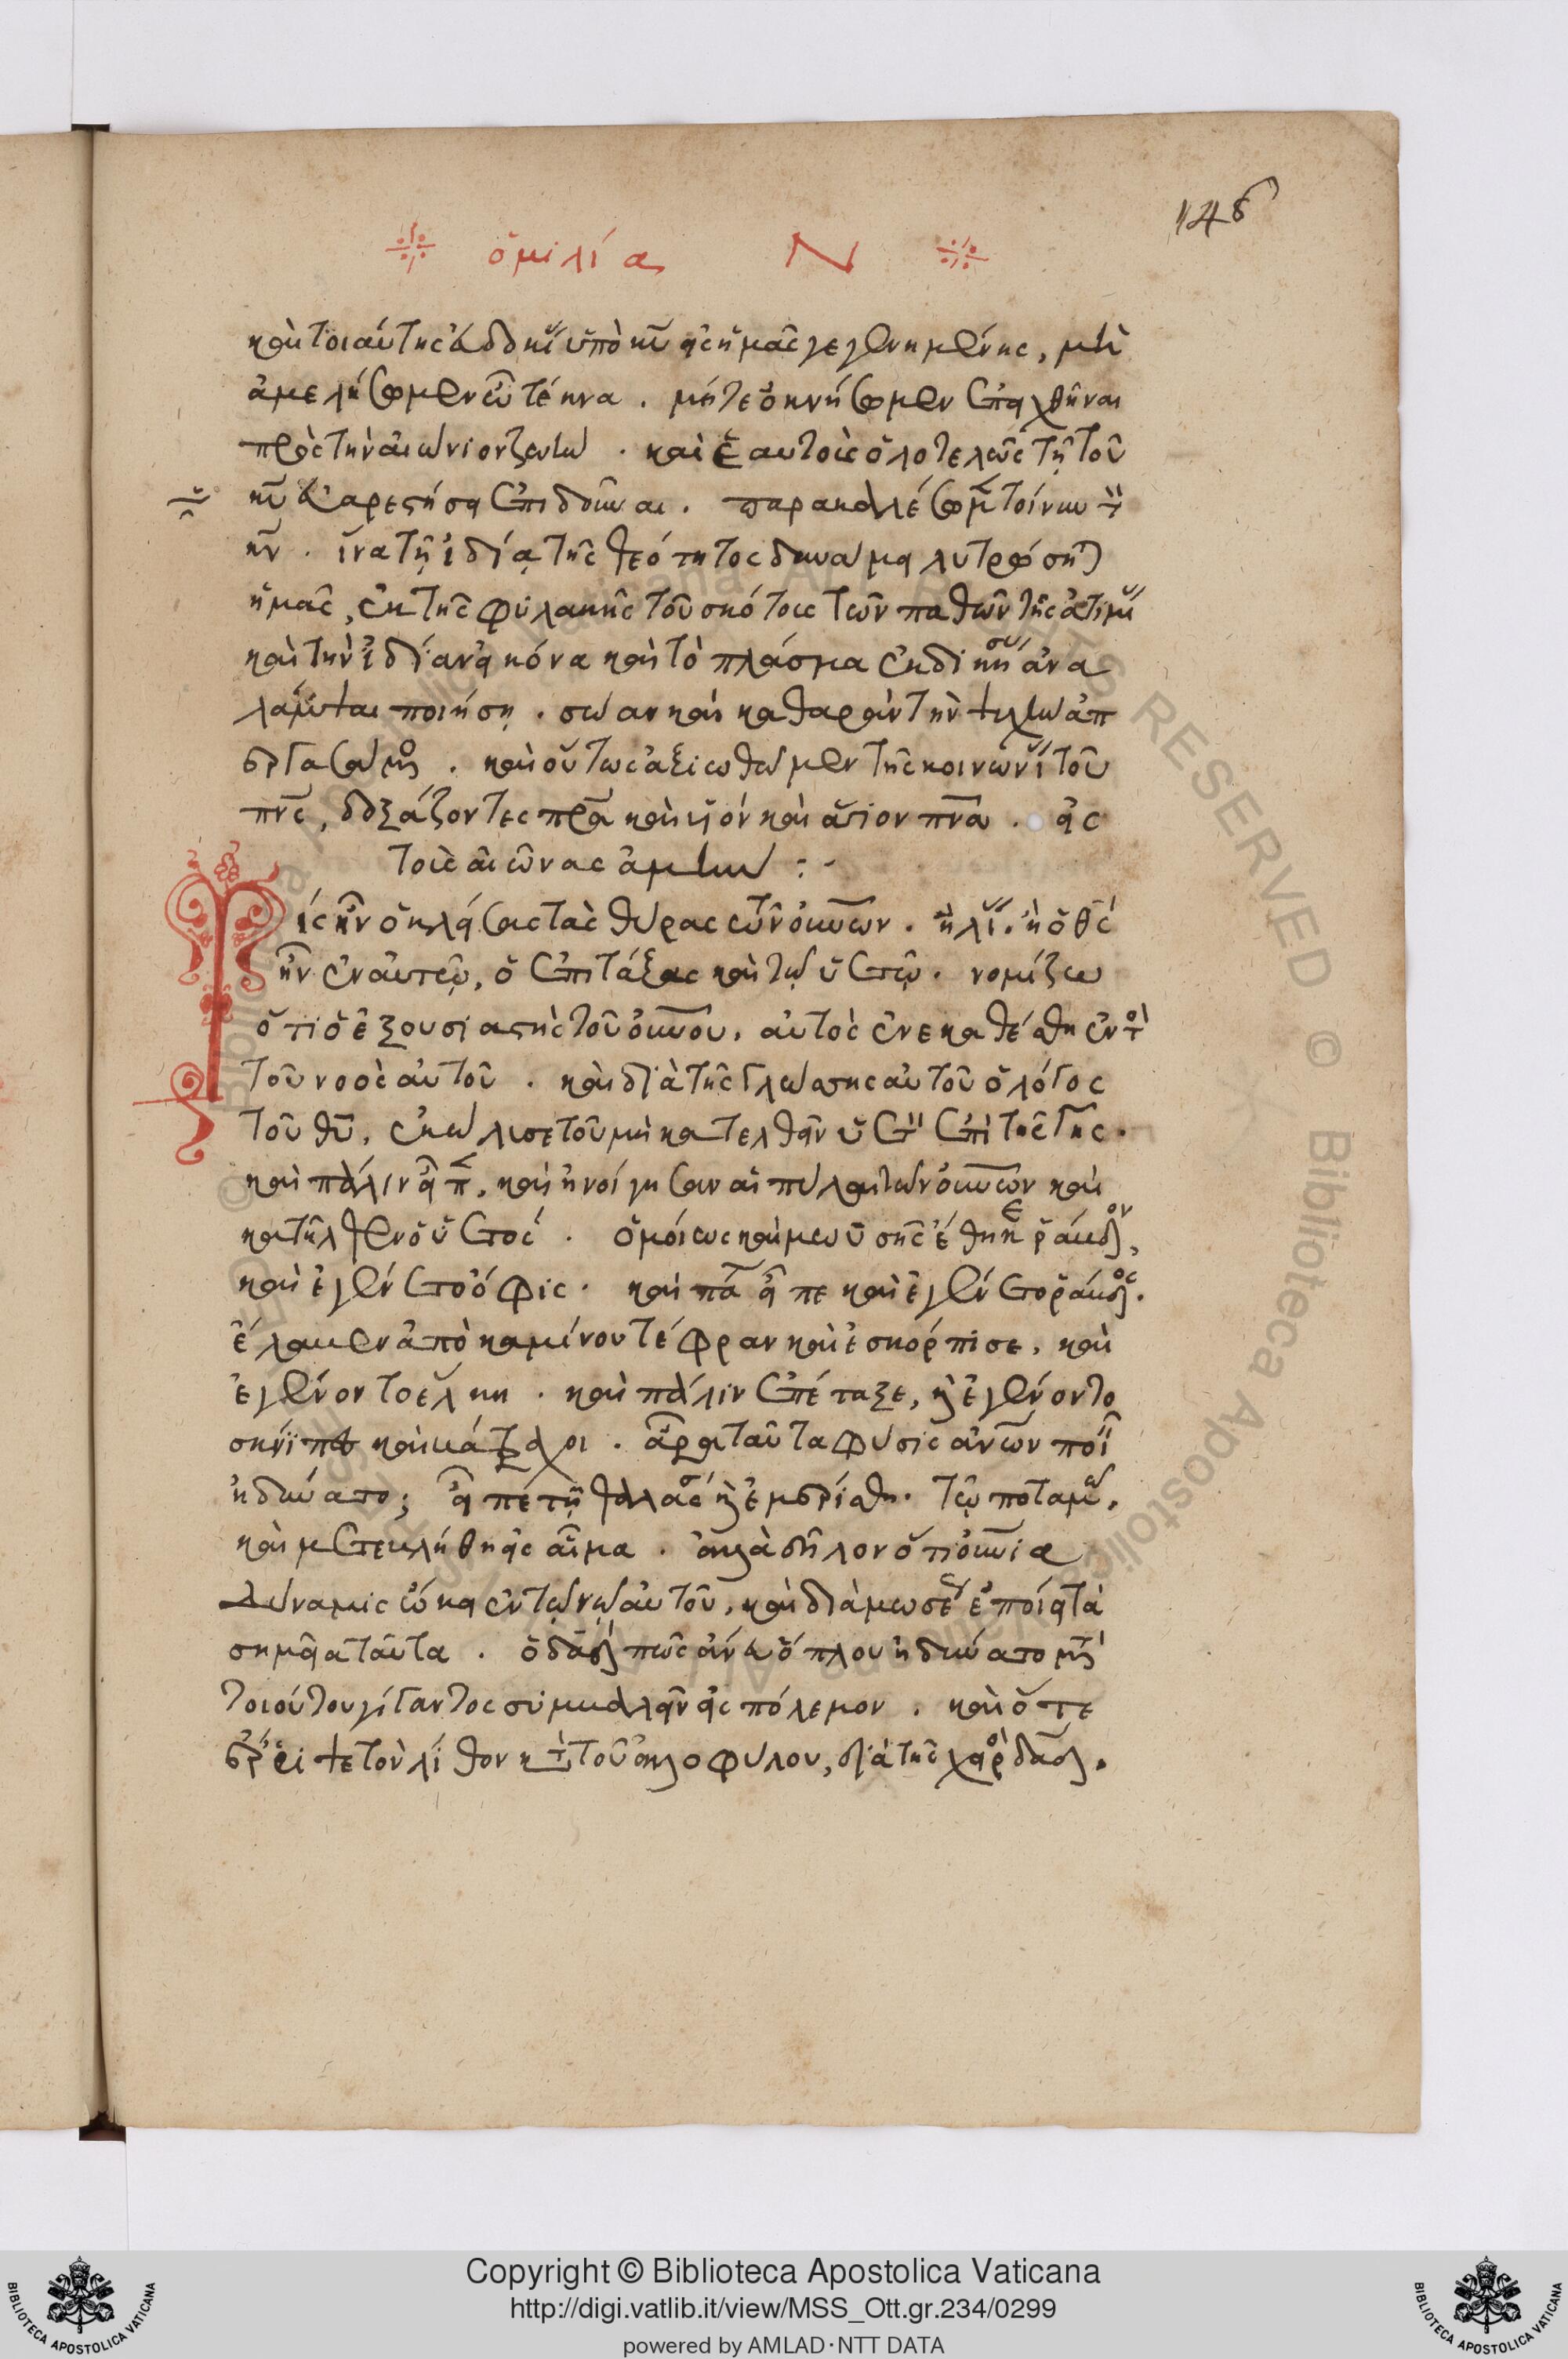 148
ὁμιλία Ν
καὶ τοιαύτης εὐδοκί ὑπὸ κυ εἰς ἡμᾶς γεγενημένης, μὴ
ἀμελήσωμεν ὦ τέκνα . μήτε ὀκνήσωμεν ἐπειχθῆναι
πρὸς τὴν αἰώνιον ζωὴν . καὶ ἑαυτοὺς ὁλοτελῶς τῇ τοῦ
κυ εὐαρεστήσει ἐπιδοῦναι . παρακαλέσωμ τοίνυν τ
κν . ἵνα τῇ ἰδίᾳ τῆς θεότητος δυνάμει λυτρώσηται
ἡμᾶς, ἐκ τῆς φυλακῆς τοῦ σκότους τῶν παθῶν τῆς ἀτιμί
καὶ τὴν ἰδίαν εἰκόνα καὶ τὸ πλάσμα ἐκδικήσας ἀνα
λάμψαι ποιήσῃ . σώαν καὶ καθαρὰν τὴν ψυχὴν ἀπ
εργασάμενος . καὶ οὕτως ἀξιωθῶμεν τῆς κοινωνί τοῦ
πνς, δοξάζοντες πρα καὶ υἱὸν καὶ ἅγιον πνα . εἰς
τοὺς αἰῶνας ἀμὴν :-
Τίς ἦν ὁ κλείσας τὰς θύρας τῶν οὐνων . ἠλί. ἢ ὁ θς
ἦν ἐν αὐτῷ, ὁ ἐπιτάξας καὶ τῷ ὑετῷ . νομίζω
ὅτι ὁ ἐξουσιαστὴς τοῦ οὐνοῦ, αὐτὸς ἐνεκαθέσθη ἐν τ
τοῦ νοὸς αὐτοῦ . καὶ διὰ τῆς γλώσσης αὐτοῦ ὁ λόγος
τοῦ θυ, ἐκώλυσε τοῦ μὴ κατελθεῖν ὑετὸν ἐπὶ τῆς γῆς .
καὶ πάλιν εἶπ, καὶ ἠνοίγησαν αἱ πύλαι τῶν οὐνων καὶ
κατῆλθεν ὁ ὑετός . ὁμοίως καὶ μωυσῆς ἔθηκε ῥάβδον,
καὶ ἐγένετο ὄφις . καὶ πα εἶπε καὶ ἐγένετο ῥάβδος .
ἔλαβεν ἀπὸ καμίνου τέφραν καὶ ἐσκόρπισε, καὶ
ἐγένοντο ἕλκη . καὶ πάλιν ἐπέταξε, καὶ ἐγένοντο
σκνίπες καὶ βάτραχοι . ἆρα ταῦτα φύσις ἀνων ποι
ἠδύνατο; εἶπε τῇ θαλάσσ καὶ ἐμερίσθη . τῷ ποταμῷ,
καὶ μετεβλήθη εἰς αἷμα . ἀλλὰ δῆλον ὅτι οὐνία
δύναμις ᾤκει ἐν τῷ νῷ αὐτοῦ, καὶ διὰ μωσέ ἐποίει τὰ
σημεῖα ταῦτα . ὁ δαδ πῶς ἄνευ ὅπλου ἠδύνατο μετὰ
τοιούτου γίγαντος συμβαλεῖν εἰς πόλεμον . καὶ ὅτε
ἔρριψε τὸν λίθον κατὰ τοῦ ἀλλοφύλου, διὰ τῆς χειρὸς δαδ .
Copyright © Biblioteca Apostolica Vaticana
http://digi.vatlib.it/view/MSS_Ott.gr.234/0299
powered by AMLAD·NTT DATA
BIBLIOTECA APOSTOLICA VATICANA
BIBLIOTECA APOSTOLICA VATICANA